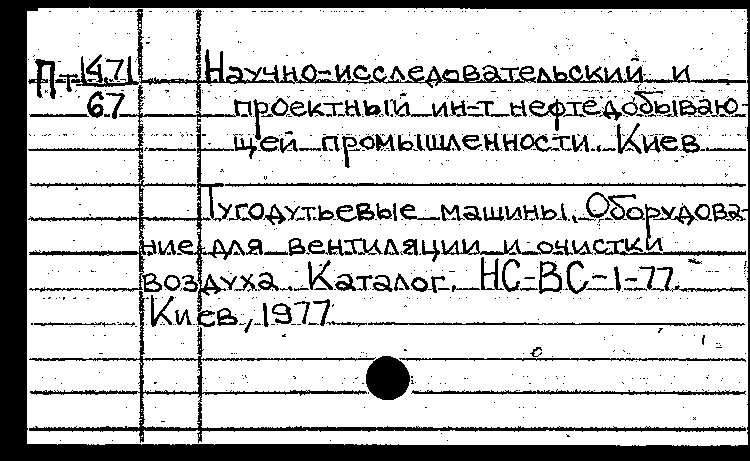 Пт 1471/67
Научно-исследовательский и
проектный ин-т нефтедобываю-
щей промышленности. Киев
Тугодутьевые машины. Оборудова-
ние для вентиляции и очистки
воздуха. Каталог. НС-ВС-1-77.
Киев, 1977